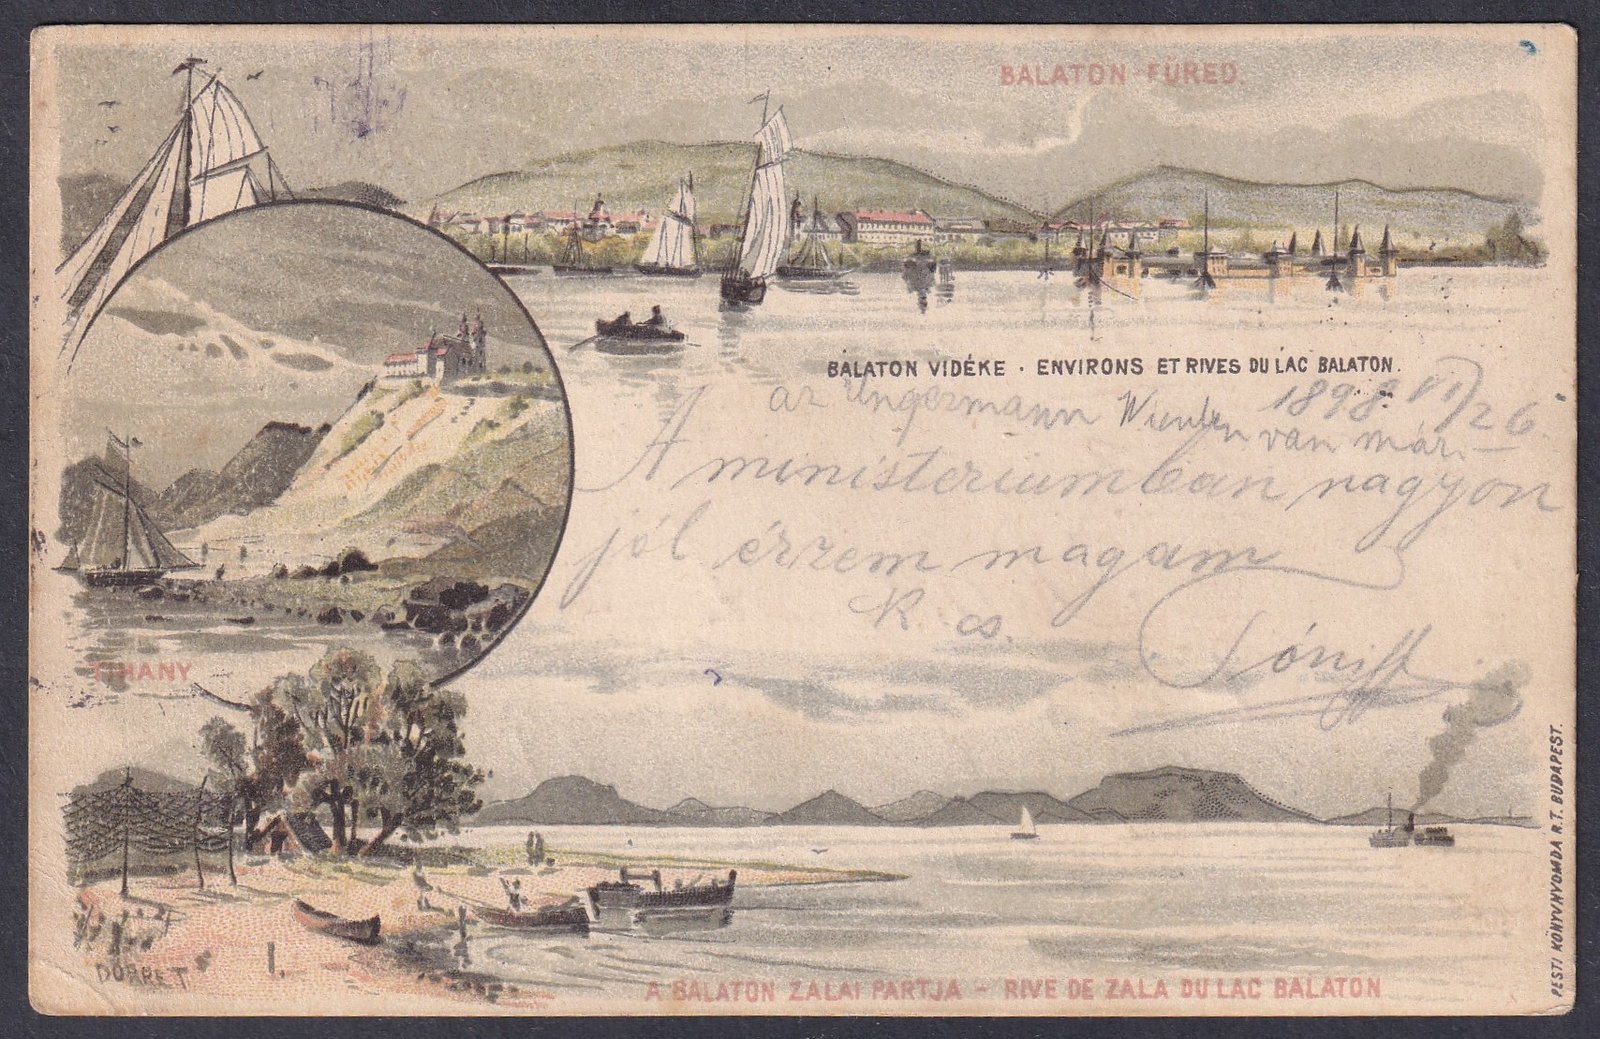 BALATON-FÜRED.
BALATON VIDÉKE · ENVIRONS ET RIVES DU LAC BALATON.
1898 VI/26.
az Ungermann van már
A ministeriumban nagyon
jól érzem magam
K. cs.
TIHANY
DÖRRET
I.
A BALATON ZALAI PARTJA - RIVE DE ZALA DU LAC BALATON
PESTI KÖNYVNYOMDA R.T. BUDAPEST.